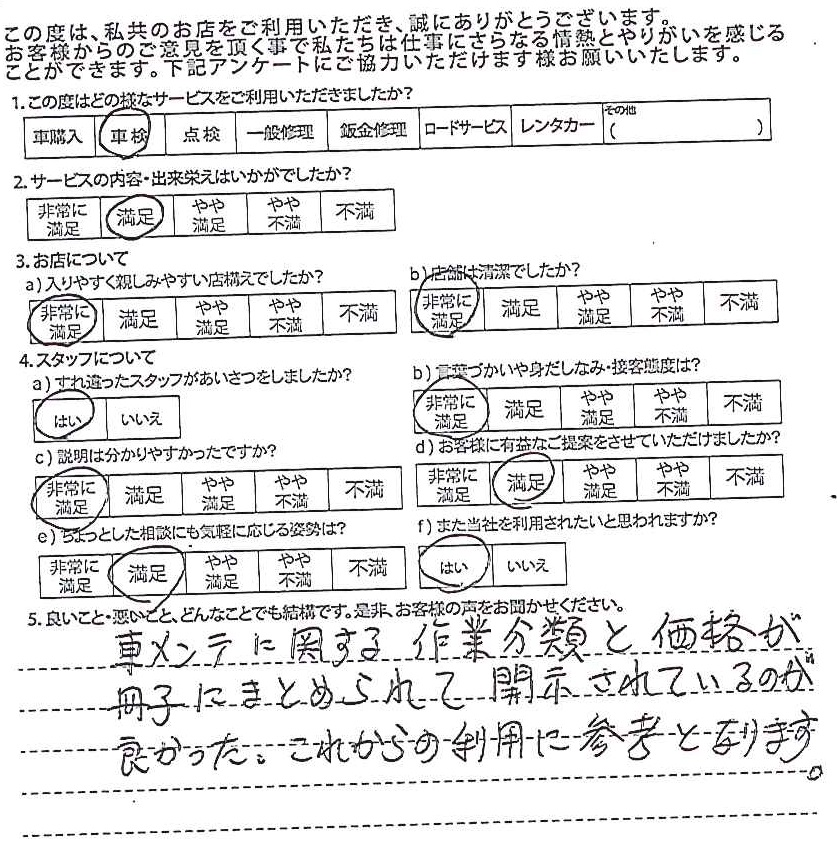 この度は、私共のお店をご利用いただき、誠にありがとうございます。
お客様からのご意見を頂く事で私たちは仕事にさらなる情熱とやりがいを感じる
ことができます。下記アンケートにご協力いただけます様お願いいたします。
1.この度はどの様なサービスをご利用いただきましたか?
車購入 車検 点検 一般修理 鈑金修理 ロードサービス レンタカー その他 ( )
2.サービスの内容・出来栄えはいかがでしたか?
非常に満足 満足 やや満足 やや不満 不満
3.お店について
a)入りやすく親しみやすい店構えでしたか?
非常に満足 満足 やや満足 やや不満 不満
b)店舗は清潔でしたか?
非常に満足 満足 やや満足 やや不満 不満
4.スタッフについて
a)すれ違ったスタッフがあいさつをしましたか?
はい いいえ
b)言葉づかいや身だしなみ・接客態度は?
非常に満足 満足 やや満足 やや不満 不満
c)説明は分かりやすかったですか?
非常に満足 満足 やや満足 やや不満 不満
d)お客様に有益なご提案をさせていただけましたか?
非常に満足 満足 やや満足 やや不満 不満
e)ちょっとした相談にも気軽に応じる姿勢は?
非常に満足 満足 やや満足 やや不満 不満
f)また当社を利用されたいと思われますか?
はい いいえ
5.良いこと・悪いこと、どんなことでも結構です。是非、お客様の声をお聞かせください。
車メンテに関する作業分類と価格が
冊子にまとめられて開示されているのが
良かった。これからの利用に参考となります。